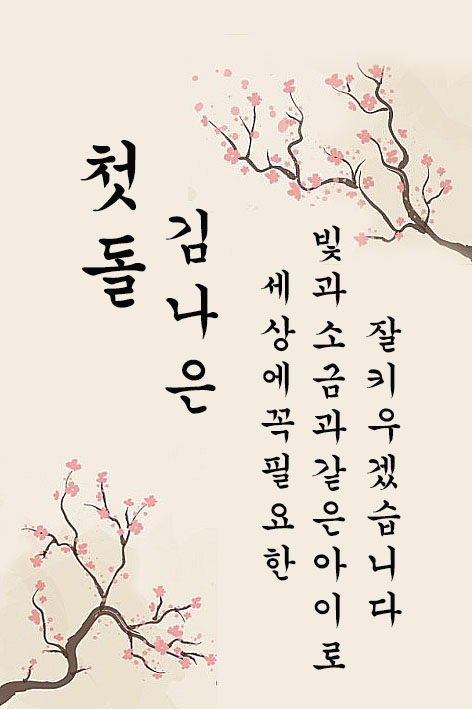 첫돌
김나은
세상에꼭필요한
빛과소금과같은아이로
잘키우겠습니다